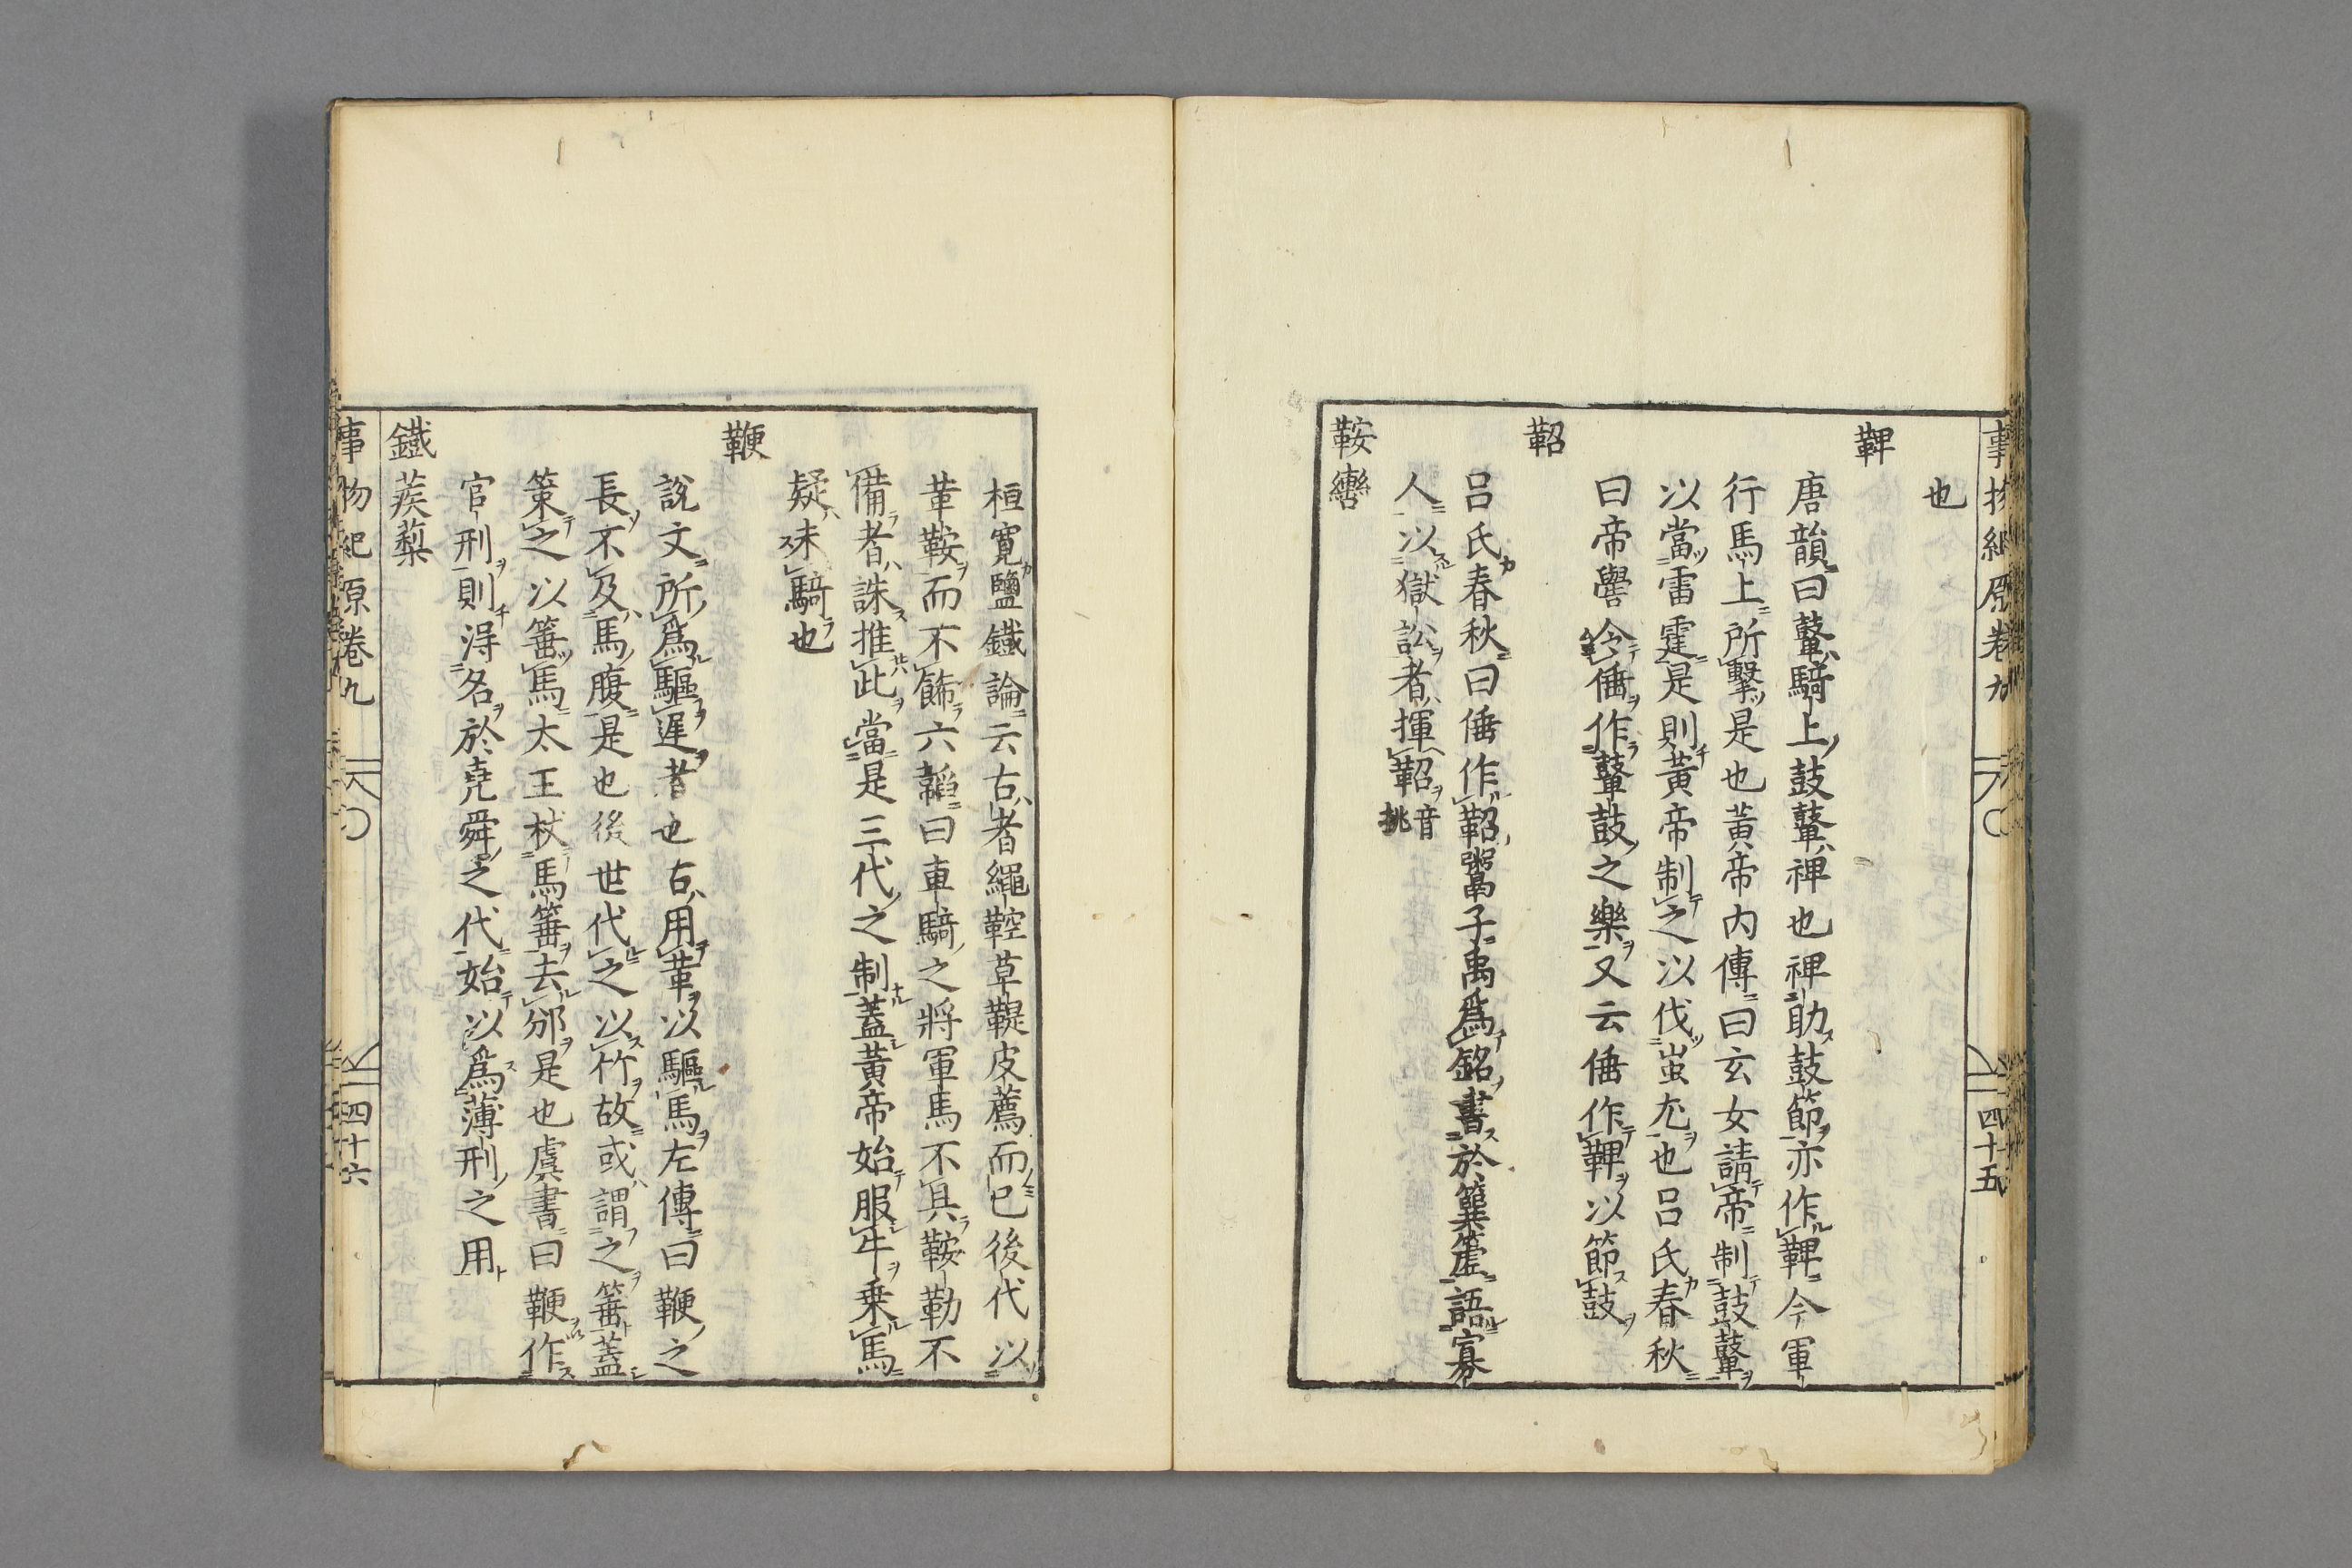 事物紀原卷九
四十五
也
鞞
唐韻曰鼙騎上鼓鼙裨也裨助鼓節亦作鞞今軍
行馬上所擊是也黃帝内傳曰玄女請帝制鼓鼙
以當雷霆是則黃帝制之以伐蚩尤也呂氏春秋
曰帝嚳令倕作鼙鼓之樂又云倕作鞞以節鼓
鞀
呂氏春秋曰倕作鞀鬻子禹爲銘書於簨簴語寡
人以獄訟者揮鞀音挑
鞍轡
桓寬鹽鐵論云古者繩鞚草鞮皮薦而已後代以
革鞍而不飾六韜曰車騎之將軍馬不具鞍勒不
備者誅推此當是三代之制蓋黃帝始服牛乗馬
疑未騎也
鞭
說文所爲驅遲者也古用革以驅馬左傳曰鞭之
長不及馬腹是也後世代之以竹故或謂之箠蓋
策之以箠馬太王杖馬箠去邠是也虞書曰鞭作
官刑則淂名於堯舜之代始以爲薄刑之用
鐵蒺蔾
事物紀原卷九
四十六